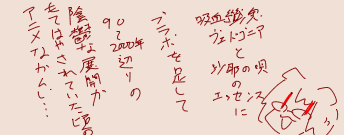 吸血殲鬼
ヴェドゴニアと
沙耶の唄の
エッセンスに
ブラボを足して
90〜2000年辺りの
陰鬱な展開が
もてはやされていた頃の
アニメなかんじ…